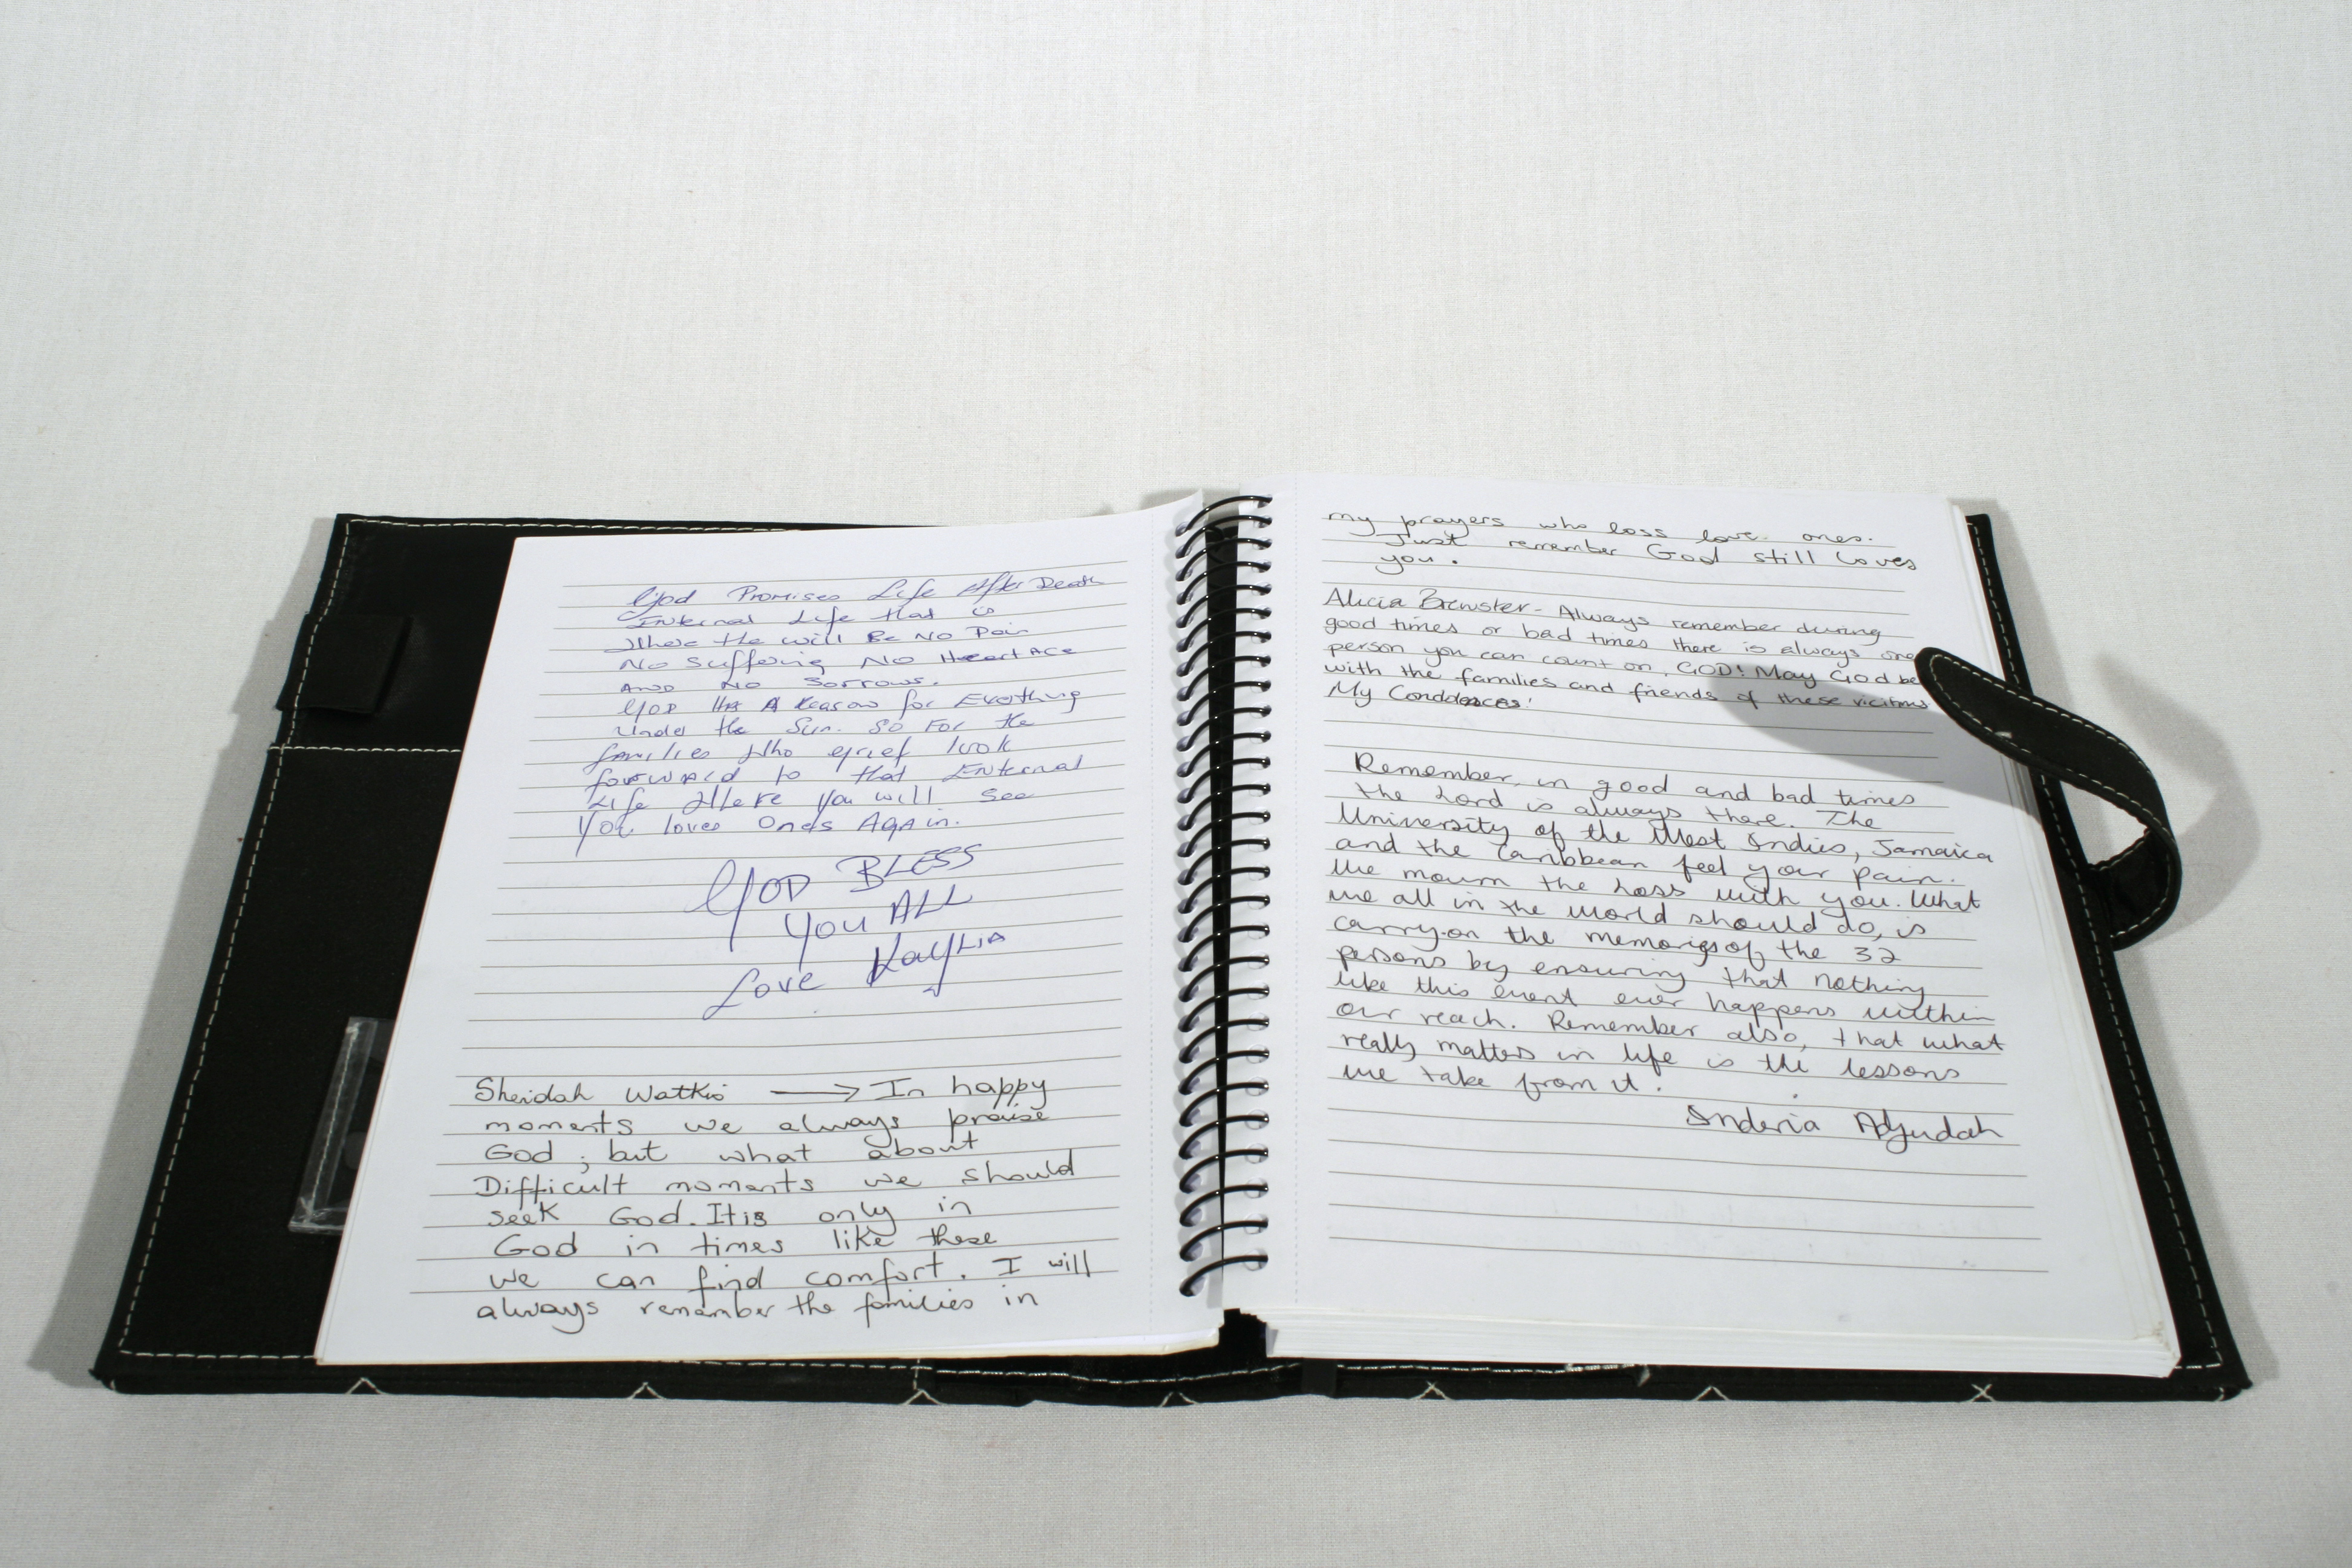 God Promises Life After Death
Enternal Life that is
Where the will Be No Pain
No Suffering No HeartAce
And No Sorrows.
God Ha A Reason for Everthing
Under the Sun. So For the
families Who grief look
forward to that Enternal
Life Where you will see
You loves Ones Again.
GOD BLESS
You ALL
Love Kaylia
Sheidah Watkis → In happy
moments we always praise
God; but what about
Difficult moments we should
seek God. It is only in
God in times like these
we can find comfort. I will
always remember the families in
my prayers who loss love ones.
Just remember God still loves
you.
Alicia Brewster - Always remember during
good times or bad times there is always one
person you can count on, GOD! May God be
with the families and friends of these victims
My Condolences!
Remember, in good and bad times
the Lord is always there. The
University of the West Indies, Jamaica
and the Caribbean feel your pain.
We mourn the Loss with you. What
we all in the world should do, is
carry-on the memories of the 32
persons by ensuring that nothing
like this event ever happens within
our reach. Remember also, that what
really matters in life is the lessons
we take from it.
Inderia Adjudah